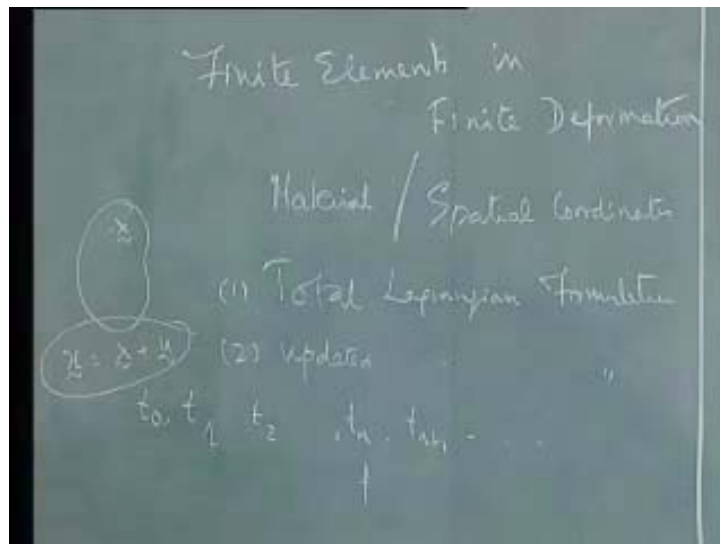 Finite Element in
Finite Deformation
Material / Spatial Coordinates
x
(1) Total Lagrangian Formulation
x = x + u (2) updated " "
t₀, t₁ t₂ , tₙ, tₙ₊₁ - . . .